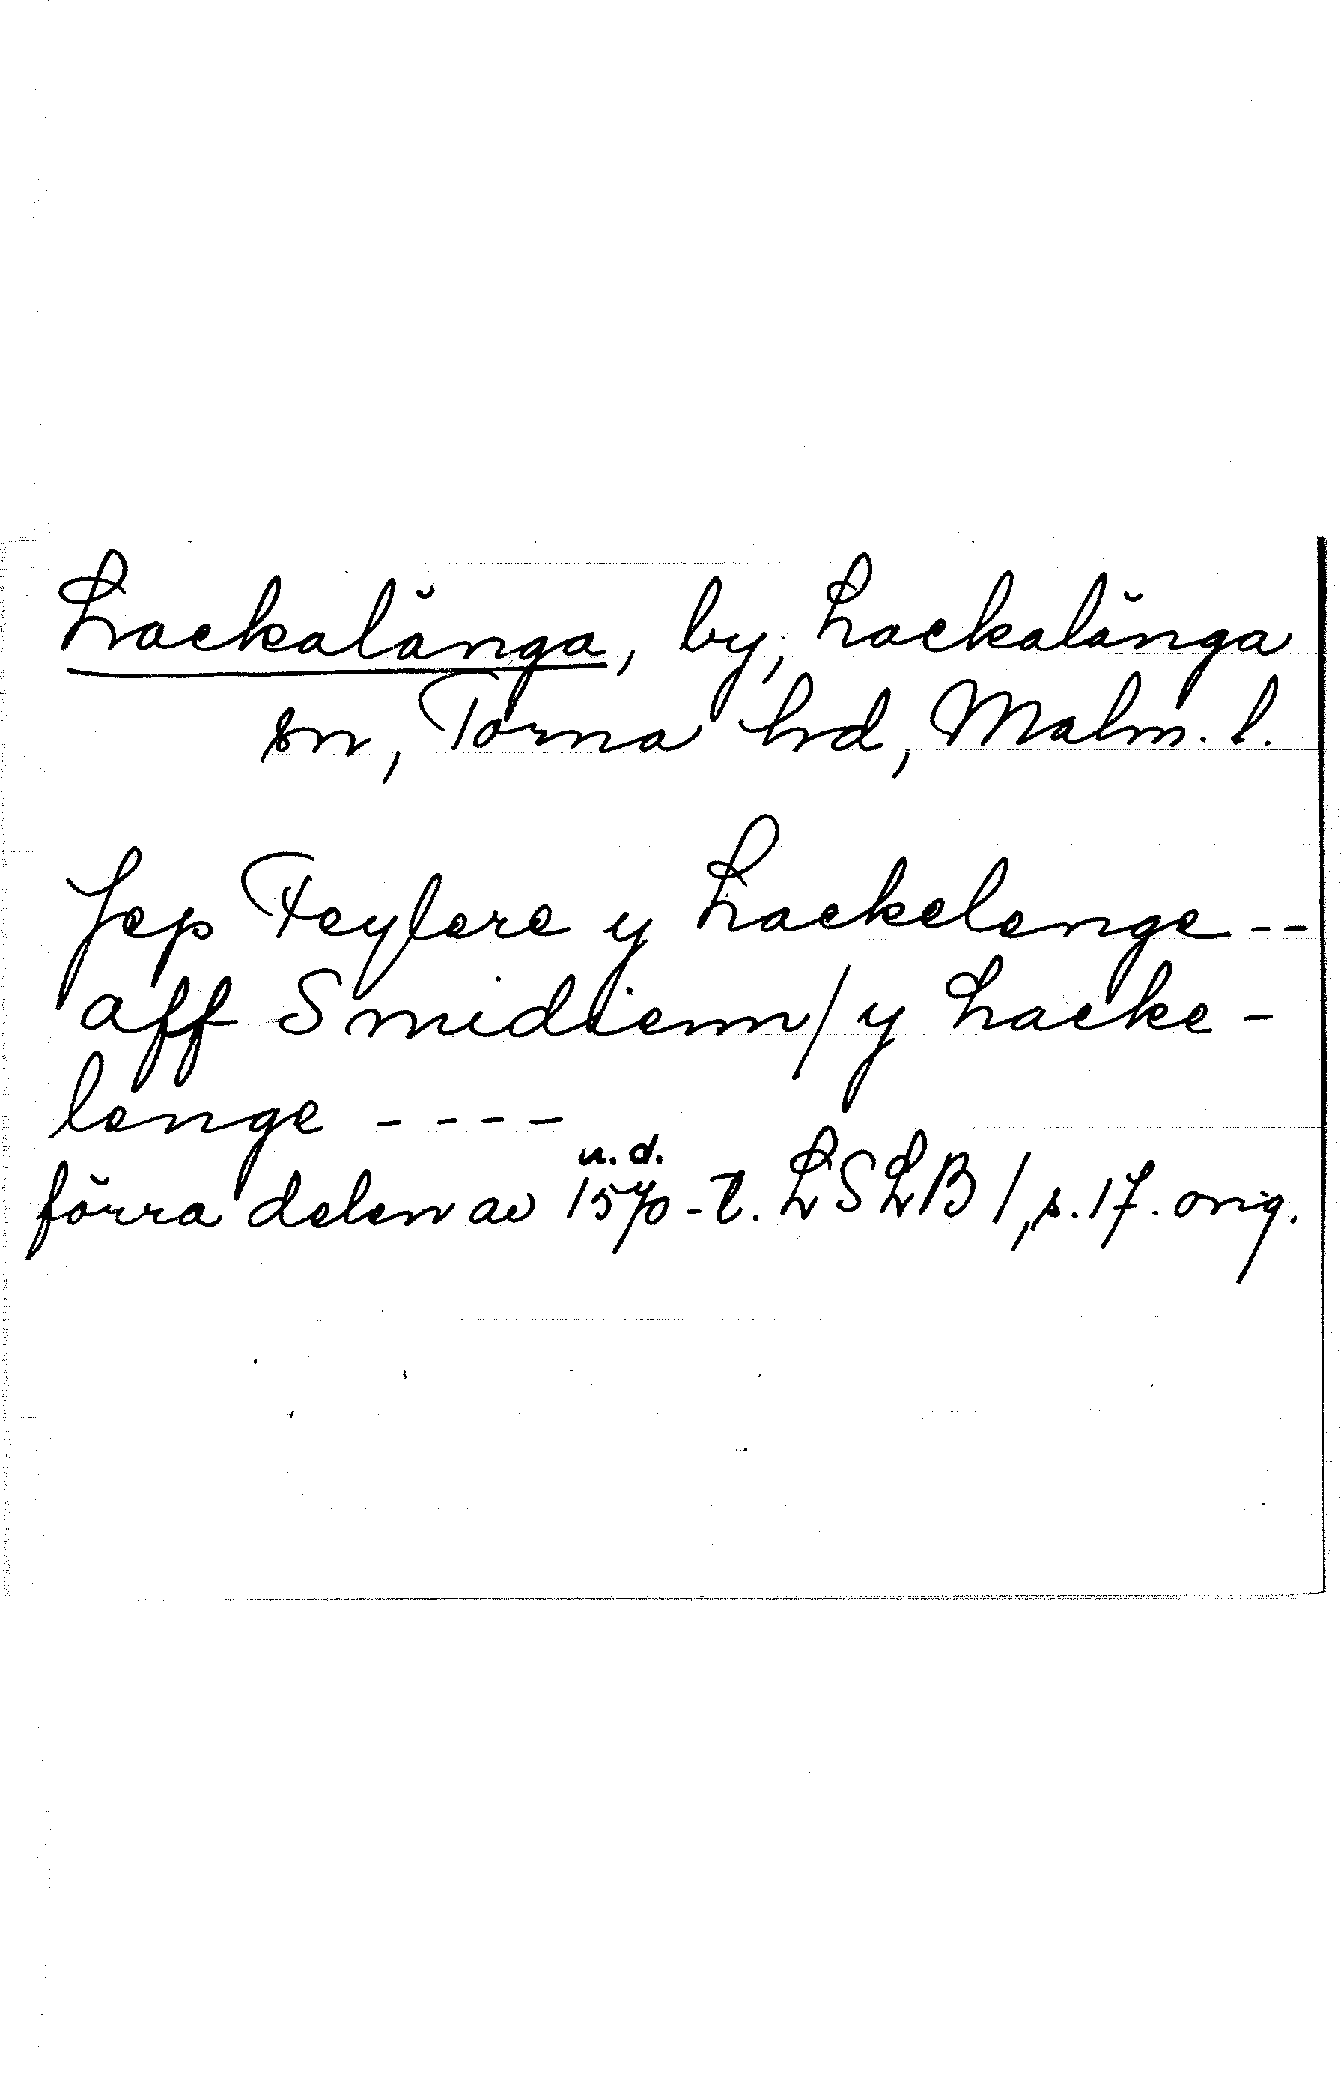 Lackalänga, by, Lackalänga
sn, Torna hd, Malm. l.
Jep Feylere y Lackelenge --
aff Smidienn / y Lacke-
lenge ----
u.d.
förra delen av 1570-t. LSLB 1, s. 17. orig.